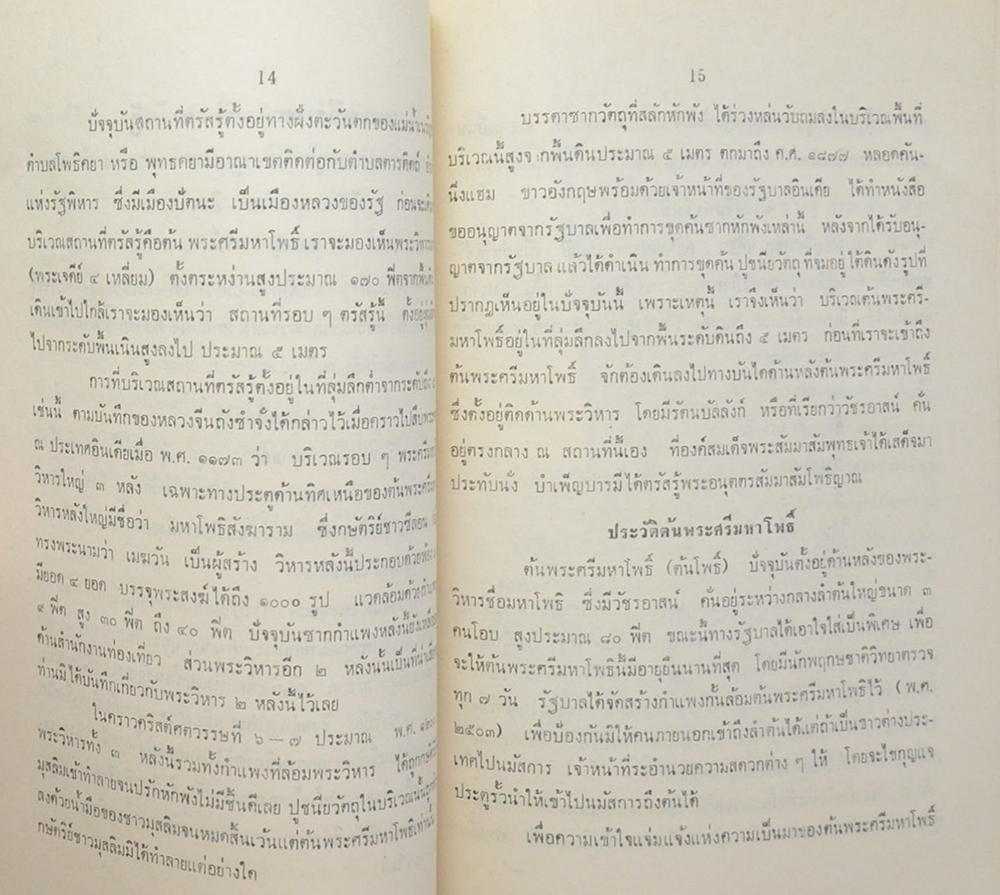 14
ปัจจุบันสถานที่ตรัสรู้ตั้งอยู่ทางฝั่งตะวันตกของแม่น้ำ
ตำบลโพธิคยา หรือ พุทธคยามีอาณาเขตติดต่อกับตำบลตารดิตถ์
แห่งรัฐพิหาร ซึ่งมีเมืองปัตนะ เป็นเมืองหลวงของรัฐ ก่อนจะ
บริเวณสถานที่ตรัสรู้คือต้น พระศรีมหาโพธิ์ เราจะมองเห็นพระวิหาร
(พระเจดีย์ ๔ เหลี่ยม) ตั้งตระหง่านสูงประมาณ ๑๗๐ ฟีตจากพื้น
เดินเข้าไปใกล้เราจะมองเห็นว่า สถานที่รอบ ๆ ตรัสรู้นี้ ตั้งอยู่
ไปจากระดับพื้นเนินสูงลงไป ประมาณ ๕ เมตร
การที่บริเวณสถานที่ตรัสรู้ตั้งอยู่ในที่ลุ่มลึกต่ำจากระดับถึง
เช่นนี้ ตามบันทึกของหลวงจีนถังซำจั๋งได้กล่าวไว้เมื่อคราวไปสืบพระ
ณ ประเทศอินเดียเมื่อ พ.ศ. ๑๑๗๓ ว่า บริเวณรอบ ๆ พระศรีมหา
วิหารใหญ่ ๓ หลัง เฉพาะทางประตูด้านทิศเหนือของต้นพระศรีมหา
วิหารหลังใหญ่มีชื่อว่า มหาโพธิสังฆาราม ซึ่งกษัตริย์ชาวซีลอน
ทรงพระนามว่า เมฆวัน เป็นผู้สร้าง วิหารหลังนี้ประกอบด้วยห้อง
มียอด ๔ ยอด บรรจุพระสงฆ์ได้ถึง ๑๐๐๐ รูป แวดล้อมด้วยกำแพง
๙ ฟีต สูง ๓๐ ฟีต ถึง ๔๐ ฟีต ปัจจุบันซากกำแพงหลังนี้ยังเหลือ
ด้านสำนักงานท่องเที่ยว ส่วนพระวิหารอีก ๒ หลังนั้นเป็นที่น่า
ท่านมิได้บันทึกเกี่ยวกับพระวิหาร ๒ หลังนี้ไว้เลย
ในคราวคริสต์ศตวรรษที่ ๖ — ๗ ประมาณ พ.ศ.
พระวิหารทั้ง ๓ หลังนี้รวมทั้งกำแพงที่ล้อมพระวิหาร ได้ถูกกษัตริย์
มุสลิมเข้าทำลายจนปรักหักพังไม่มีชิ้นดีเลย ปูชนียวัตถุในบริเวณนั้น
ลงด้วยน้ำมือของชาวมุสลิมจนหมดสิ้นเว้นแต่ต้นพระศรีมหาโพธิเท่านั้น
กษัตริย์ชาวมุสลิมมิได้ทำลายแต่อย่างใด
15
บรรดาซากวัตถุที่สลักหักพัง ได้ร่วงหล่นวับถมลงในบริเวณพื้นที่
บริเวณนี้สูงจ กพื้นดินประมาณ ๕ เมตร ตกมาถึง ค.ศ. ๑๘๗๗ หลอดคัน-
นึ่งแฮม ชาวอังกฤษพร้อมด้วยเจ้าหน้าที่ของรัฐบาลอินเดีย ได้ทำหนังสือ
ขออนุญาตจากรัฐบาลเพื่อทำการขุดค้นซากหักพังเหล่านี้ หลังจากได้รับอนุ-
ญาตจากรัฐบาล แล้วได้ดำเนิน ทำการขุดค้น ปูชนียวัตถุ ที่จมอยู่ ใต้ดินดังรูปที่
ปรากฏเห็นอยู่ในปัจจุบันนี้ เพราะเหตุนี้ เราจึงเห็นว่า บริเวณต้นพระศรี-
มหาโพธิ์อยู่ในที่ลุ่มลึกลงไปจากพื้นระดับดินถึง ๕ เมตร ก่อนที่เราจะเข้าถึง
ต้นพระศรีมหาโพธิ์ จักต้องเดินลงไปทางบันไดด้านหลังต้นพระศรีมหาโพธิ์
ซึ่งตั้งอยู่ติดด้านพระวิหาร โดยมีรัตนบัลลังก์ หรือที่เรียกว่าวัชรอาสน์ คั่น
อยู่ตรงกลาง ณ สถานที่นี้เอง ที่องค์สมเด็จพระสัมมาสัมพุทธเจ้าได้เสด็จมา
ประทับนั่ง บำเพ็ญบารมีได้ตรัสรู้พระอนุตตรสัมมาสัมโพธิญาณ
ประวัติต้นพระศรีมหาโพธิ์
ต้นพระศรีมหาโพธิ์ (ต้นโพธิ์) ปัจจุบันตั้งอยู่ด้านหลังของพระ-
วิหารชื่อมหาโพธิ ซึ่งมีวัชรอาสน์ คั่นอยู่ระหว่างกลางลำต้นใหญ่ขนาด ๓
คนโอบ สูงประมาณ ๘๐ ฟีต ขณะนี้ทางรัฐบาลได้เอาใจใส่เป็นพิเศษ เพื่อ
จะให้ต้นพระศรีมหาโพธินี้มีอายุยืนนานที่สุด โดยมีนักพฤกษชาติวิทยาตรวจ
ทุก ๗ วัน รัฐบาลได้จัดสร้างกำแพงกั้นล้อมต้นพระศรีมหาโพธิไว้ (พ.ศ.
๒๕๐๓) เพื่อป้องกันมิให้คนภายนอกเข้าถึงลำต้นได้แต่ถ้าเป็นชาวต่างประ-
เทศไปนมัสการ เจ้าหน้าที่ระอำนวยความสดวกต่าง ๆ ให้ โดยจะไขกุญแจ
ประตูรั้วนำให้เข้าไปนมัสการถึงต้นได้
เพื่อความเข้าใจแจ่มแจ้งแห่งความเป็นมาของต้นพระศรีมหาโพธิ์